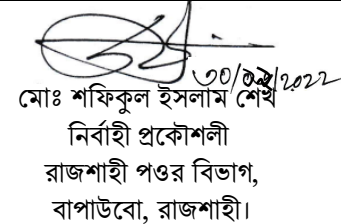 ৩০/০৯/২০২২
মোঃ শফিকুল ইসলাম শেখ
নির্বাহী প্রকৌশলী
রাজশাহী পওর বিভাগ,
বাপাউবো, রাজশাহী।